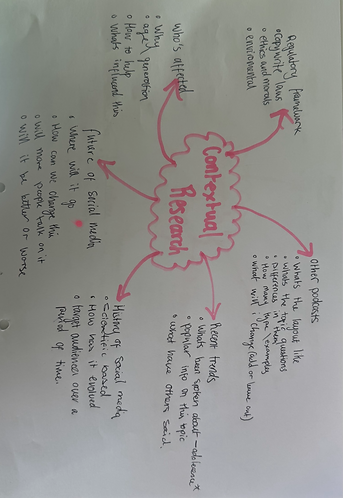 Contextual
Research
Regulatory framework
• copywrite laws
• ethics and morals
• enviromental
Other podcasts
• whats the layout like
• whats the topic questions
• differences in them
• How many types/examples
• what will i change (add or leave out)
Recent trends
• whats been spoken about
• popular info on this topic
• what have others said.
History of social media
• scientific based
• How has it evolved
• target audiences over a
period of time.
future of social media
• Where will it go
• How can we change this
• will more people talk on it
• will it be better or worse
who's affected
• Why
• age/generation
• How to help
• Whats influend this